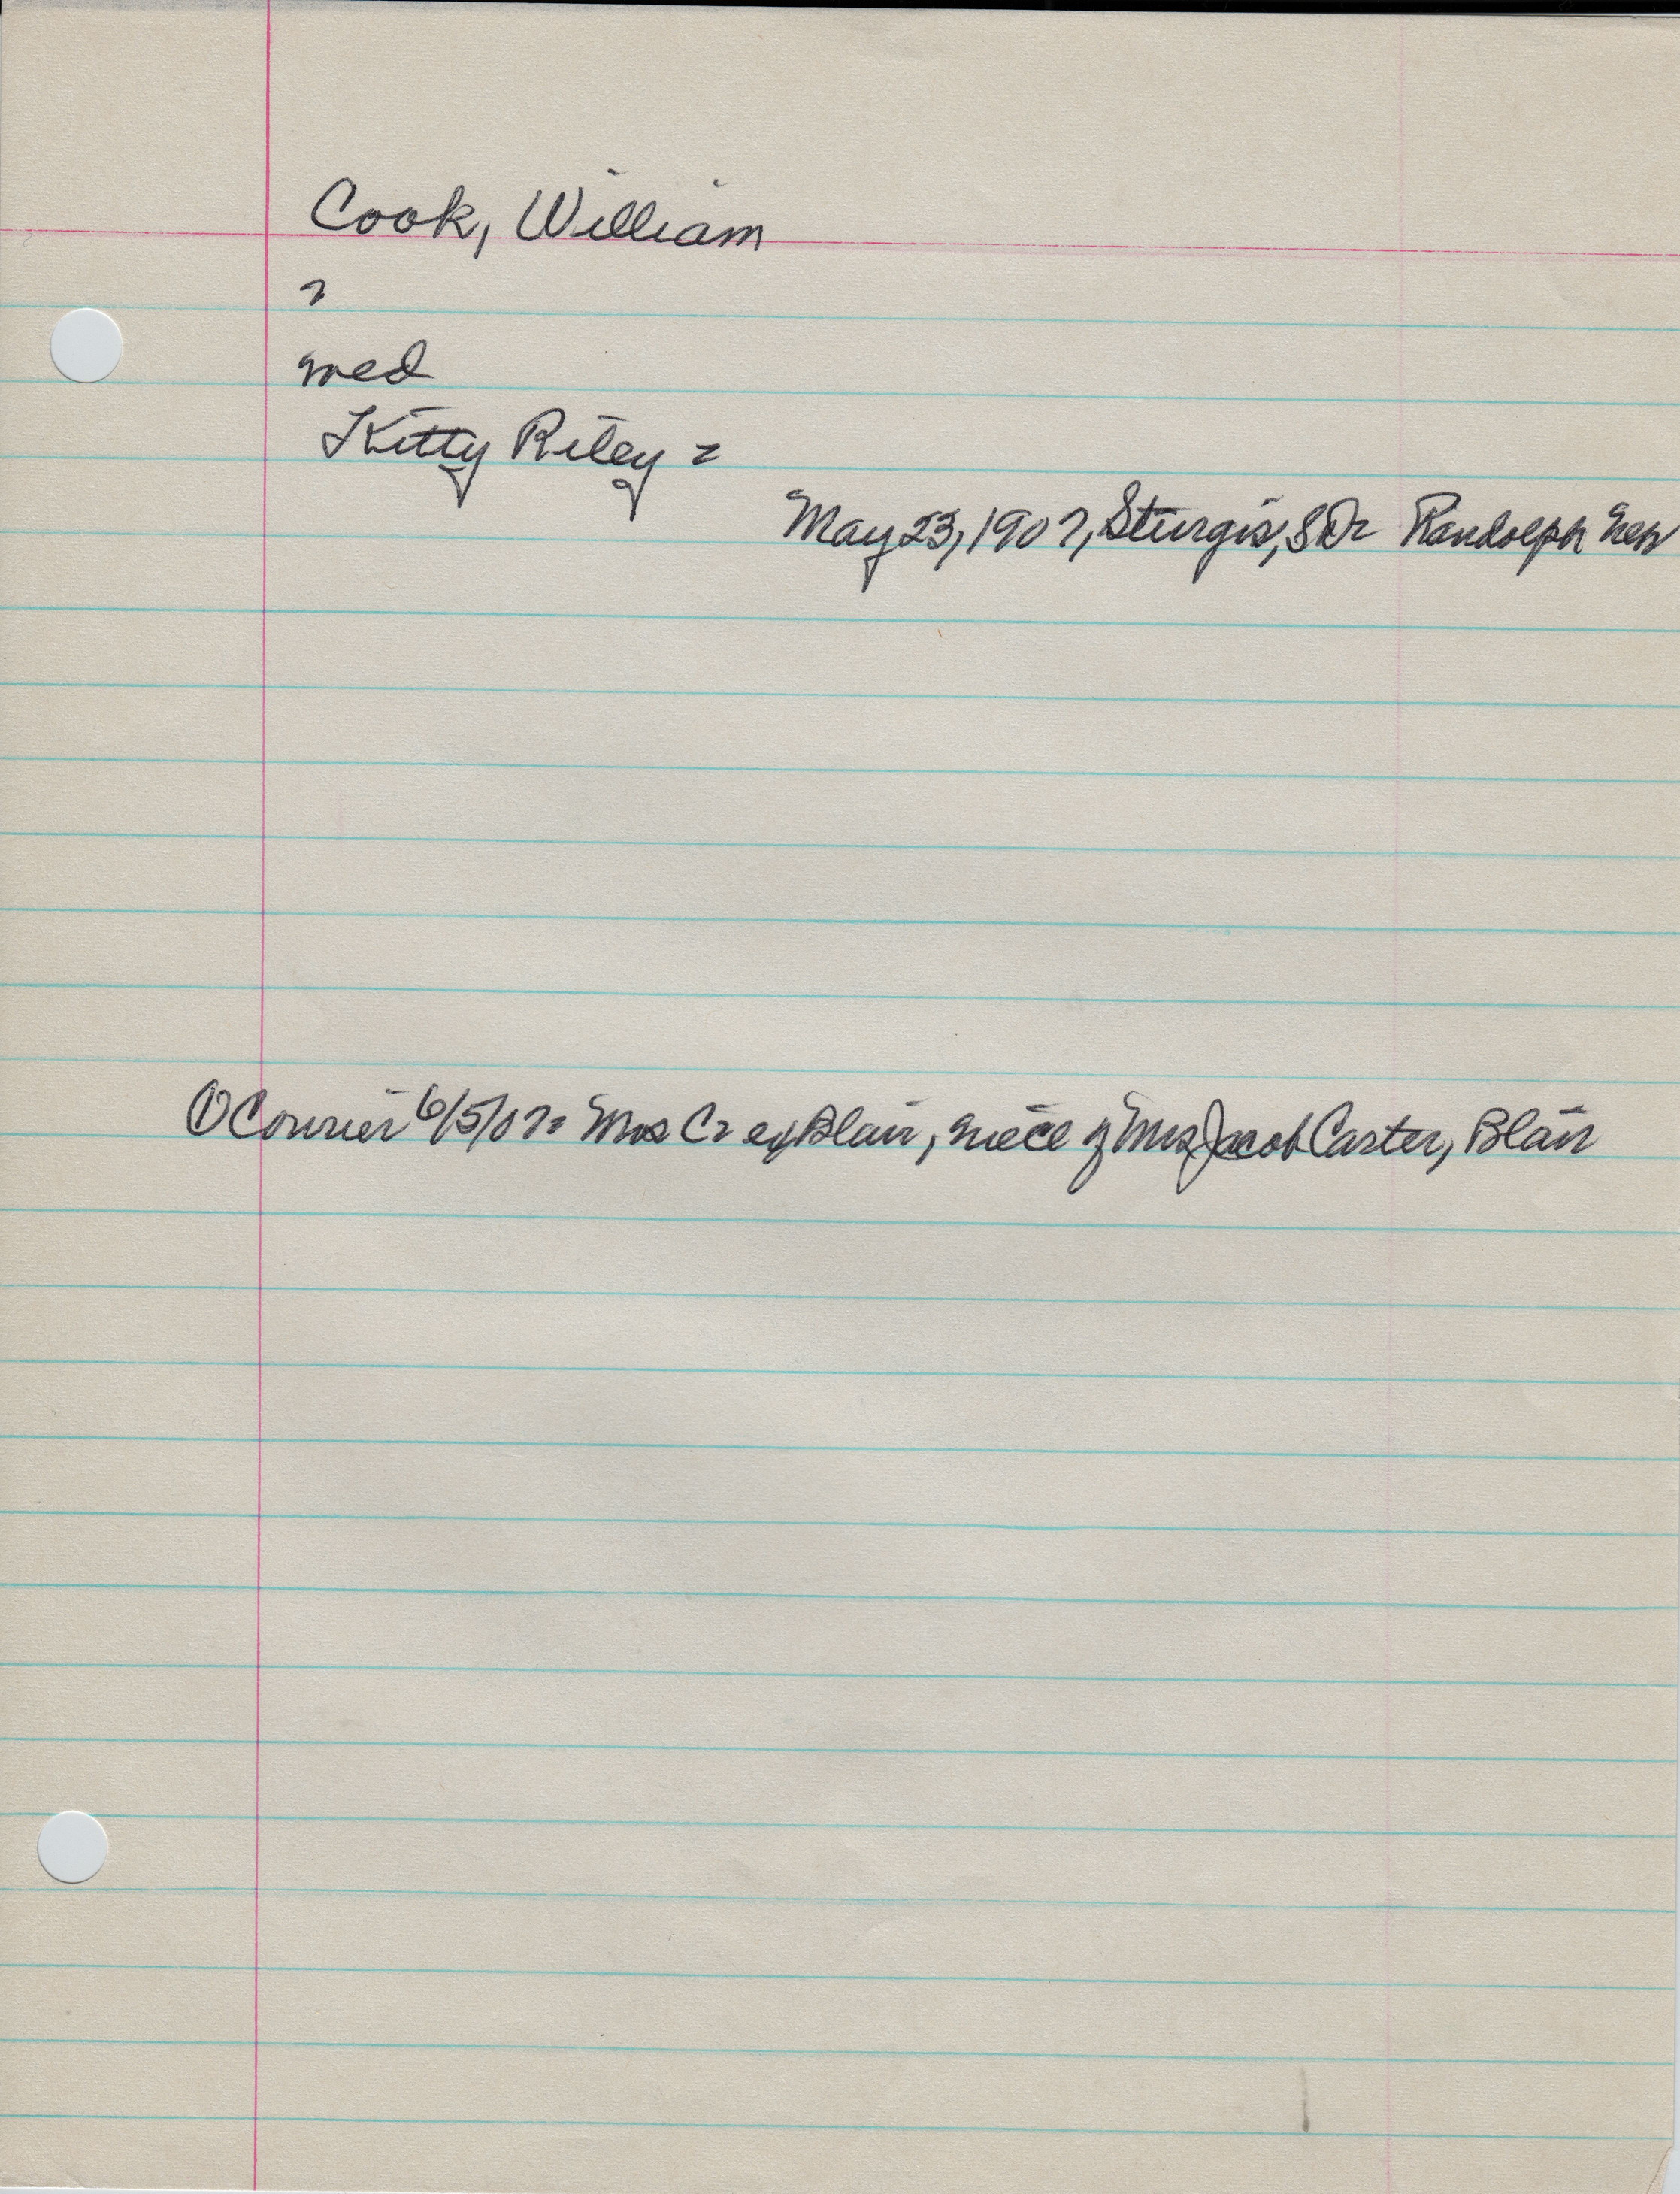 Cook, William
?
med
Kitty Riley =
May 23, 1907, Sturgis, SD= Randolph
① Courier 6/5/07= Mrs C= ex Blair, niece of Mrs Jacob Carter, Blair